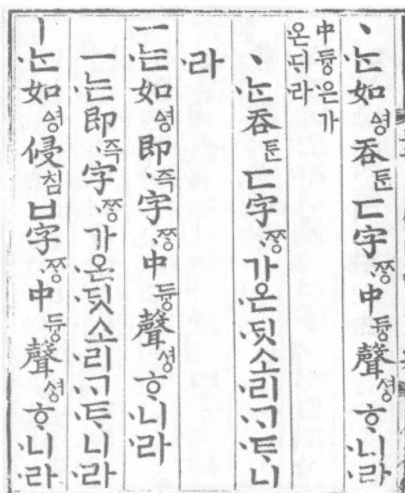 ㆍᄂᆞᆫ如ᅀᅧᆼ呑ᄐᆞᆫㄷ字ᄍᆞᆼ中듀ᇰ聲셔ᇰᄒᆞ니라
中듀ᇰ은가
온ᄃᆡ라
ㆍᄂᆞᆫ呑ᄐᆞᆫㄷ字ᄍᆞᆼ가온ᄃᆡᆺ소리ᄀᆞᄐᆞ니
라
ㅡ는如ᅀᅧᆼ即즉字ᄍᆞᆼ中듀ᇰ聲셔ᇰᄒᆞ니라
ㅡ는即즉字ᄍᆞᆼ가온ᄃᆡᆺ소리ᄀᆞᄐᆞ니라
ㅣᄂᆞᆫ如ᅀᅧᆼ侵침ㅂ字ᄍᆞᆼ中듀ᇰ聲셔ᇰᄒᆞ니라